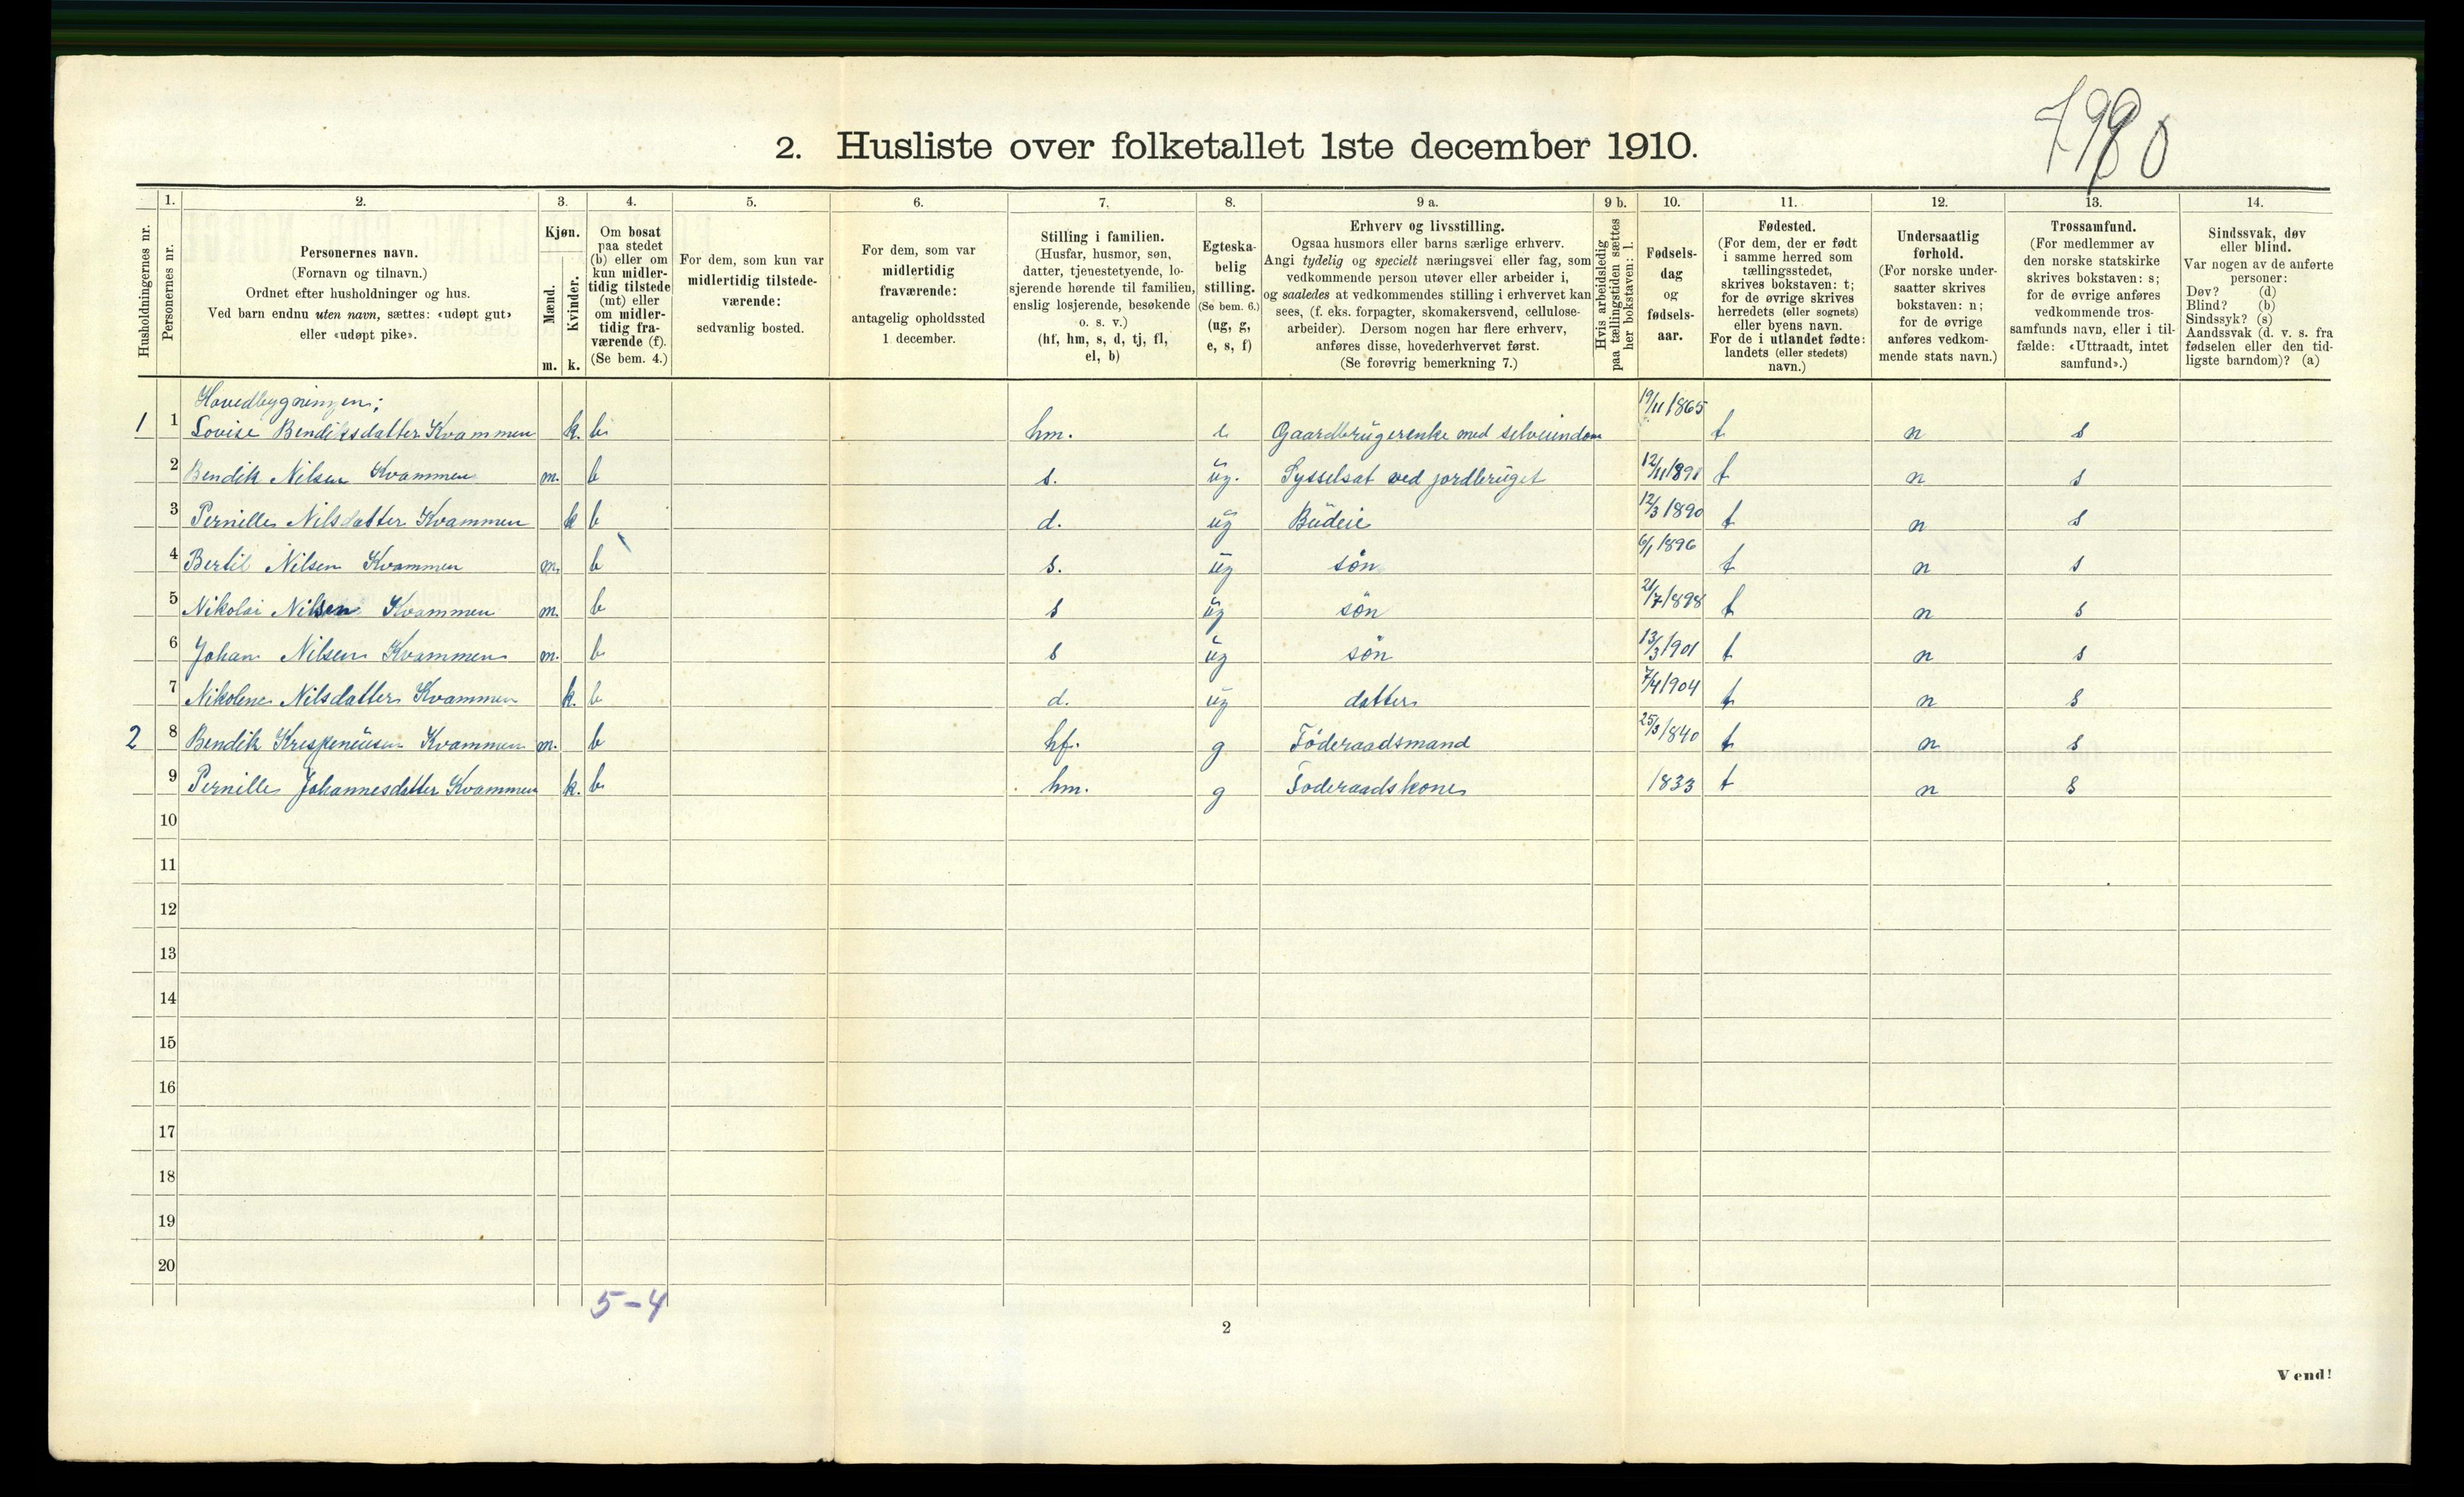 7980
2. Husliste over folketallet 1ste december 1910.
Husholdningernes nr.
1.
Personernes nr.
2.
Personernes navn.
(Fornavn og tilnavn.)
Ordnet efter husholdninger og hus.
Ved barn endnu uten navn, sættes: «udøpt gut»
eller «udøpt pike».
3.
Kjøn.
Mænd.
Kvinder.
m. k.
4.
Om bosat
paa stedet
(b) eller om
kun midler-
tidig tilstede
(mt) eller
om midler-
tidig fra-
værende (f).
(Se bem. 4.)
5.
For dem, som kun var
midlertidig tilstede-
værende:
sedvanlig bosted.
6.
For dem, som var
midlertidig
fraværende:
antagelig opholdssted
1 december.
7.
Stilling i familien.
(Husfar, husmor, søn,
datter, tjenestetyende, lo-
sjerende hørende til familien,
enslig losjerende, besøkende
o. s. v.)
(hf, hm, s, d, tj, fl,
el, b)
8.
Egteska-
belig
stilling.
(Se bem. 6.)
(ug, g,
e, s, f)
9 a.
Erhverv og livsstilling.
Ogsaa husmors eller barns særlige erhverv.
Angi tydelig og specielt næringsvei eller fag, som
vedkommende person utøver eller arbeider i,
og saaledes at vedkommendes stilling i erhvervet kan
sees, (f. eks. forpagter, skomakersvend, cellulose-
arbeider). Dersom nogen har flere erhverv,
anføres disse, hovederhvervet først.
(Se forøvrig bemerkning 7.)
9 b.
Hvis arbeidsledig
paa tællingstiden sættes
her bokstaven: l.
10.
Fødsels-
dag
og
fødsels-
aar.
11.
Fødested.
(For dem, der er født
i samme herred som
tællingsstedet,
skrives bokstaven: t;
for de øvrige skrives
herredets (eller sognets)
eller byens navn.
For de i utlandet fødte:
landets (eller stedets)
navn.)
12.
Undersaatlig
forhold.
(For norske under-
saatter skrives
bokstaven: n;
for de øvrige
anføres vedkom-
mende stats navn.)
13.
Trossamfund.
(For medlemmer av
den norske statskirke
skrives bokstaven: s;
for de øvrige anføres
vedkommende tros-
samfunds navn, eller i til-
fælde: «Uttraadt, intet
samfund».)
14.
Sindssvak, døv
eller blind.
Var nogen av de anførte
personer:
Døv? (d)
Blind? (b)
Sindssyk? (s)
Aandssvak (d. v. s. fra
fødselen eller den tid-
ligste barndom)? (a)
Hovedbygningen;
1 1 Lovise Bendiksdatter Kvammen k. b. hm. e Gaardbrugerenke med selveiendom 19/11 1865 t n s
2 Bendik Nilsen Kvammen m. b s. ug. Sysselsat ved jordbruget t n s
3 Pernille Nilsdatter Kvammen k b d. ug Budeie 12/3 1890 t n s
4 Bertil Nilsen Kvammen m. b s. ug søn 6/1 1896 t n s
5 Nikolai Nilsen Kvammen m. b s ug søn 21/7 1898 t n s
6 Johan Nilsen Kvammen m. b s ug søn 13/3 1901 t n s
7 Nikoline Nilsdatter Kvammen k. b d. ug datter 7/4 1904 t n s
2 8 Bendik Kvammen m. b hf. g Föderaadsmand 25/3 1840 t n s
9 Pernille Johannesdatter Kvammen k. b hm. g Föderaadskone 1833 t n s
10
11
12
13
14
15
16
17
18
19
20
5-4
2
Vend!